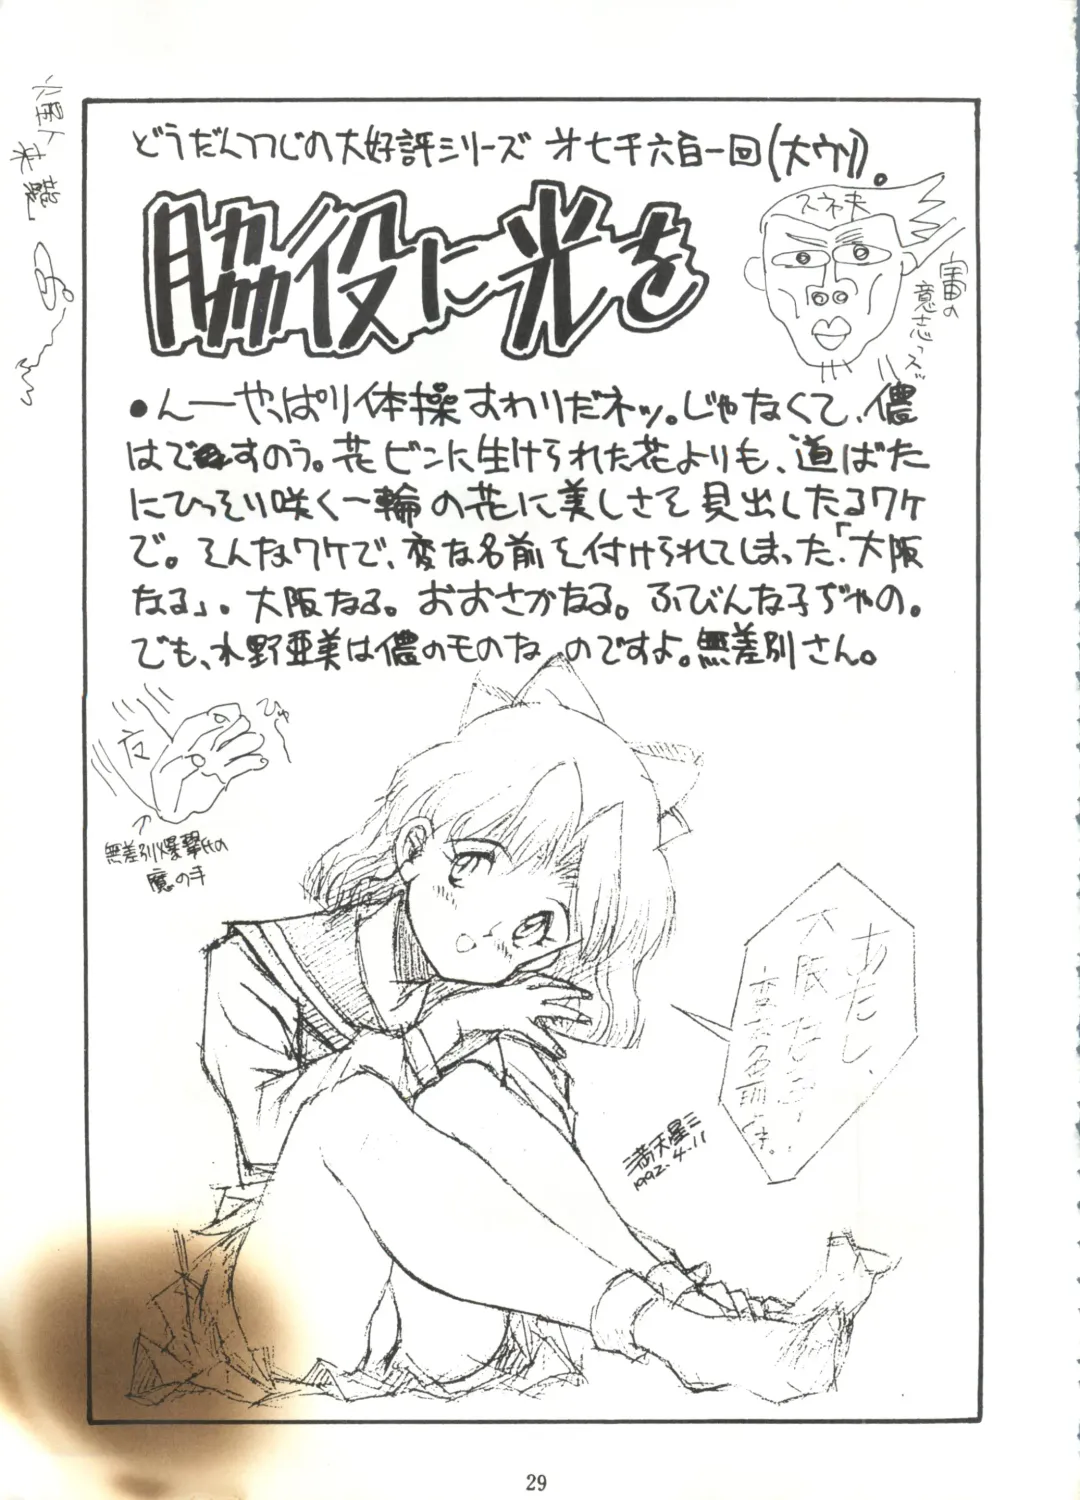 どうだんつつじの大好評シリーズ 才七千六百一回(大ウソ)。
脇役に光を
スネ夫
宙の
意志っス
●んーやっぱり体操すわりだネッ。じゃなくて、儂
はですのう。花ビンに生けられた花よりも、道ばた
にひっそり咲く一輪の花に美しさを見出したるワケ
で。そんなワケで、変な名前を付けられてしまった「大阪
なる」。大阪なる。おおさかなる。ふびんな子ぢゃの。
でも、水野亜美は儂のものなのですよ。無差別さん。
ひゅー
無差別爆撃氏の
魔の手
あたし、
大阪なる!
変な名前…。
満天星三
1992.4.11
29